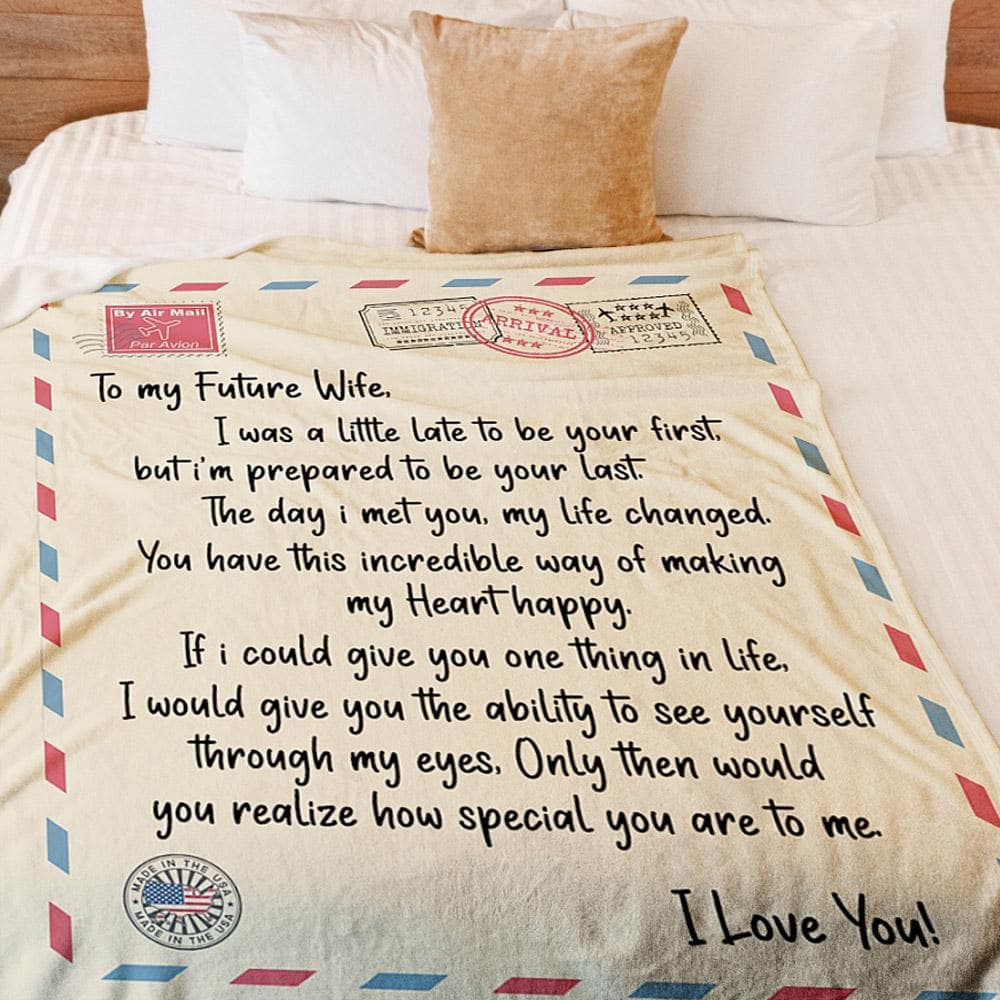 By Air Mail
Par Avion
12345
IMMIGRATI
ARRIVAL
APPROVED
12345
To my Future Wife,
I was a little late to be your first,
but i'm prepared to be your last.
The day i met you, my life changed.
You have this incredible way of making
my Heart happy.
If i could give you one thing in life,
I would give you the ability to see yourself
through my eyes, Only then would
you realize how special you are to me.
MADE IN THE USA
MADE IN THE USA
I Love You!